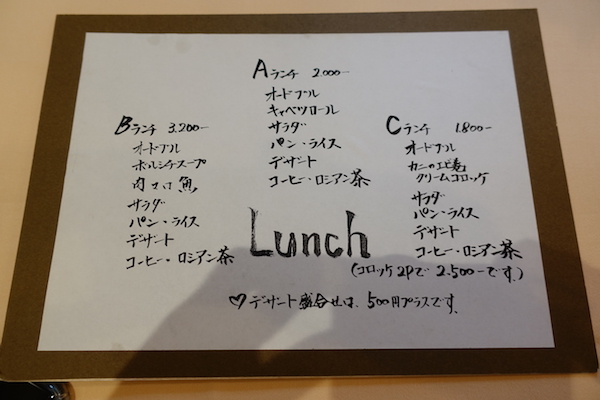 Aランチ 2.000-
オードブル
キャベツロール
サラダ
パン・ライス
デザート
コーヒー・ロシアン茶
Bランチ 3.200-
オードブル
ボルシチスープ
肉 or 魚
サラダ
パン・ライス
デザート
コーヒー・ロシアン茶
Cランチ 1.800-
オードブル
カニの
クリームコロッケ
サラダ
パン・ライス
デザート
コーヒー・ロシアン茶
(コロッケ2Pで 2.500-です.)
Lunch
♡デザート盛合せは、500円プラスです.